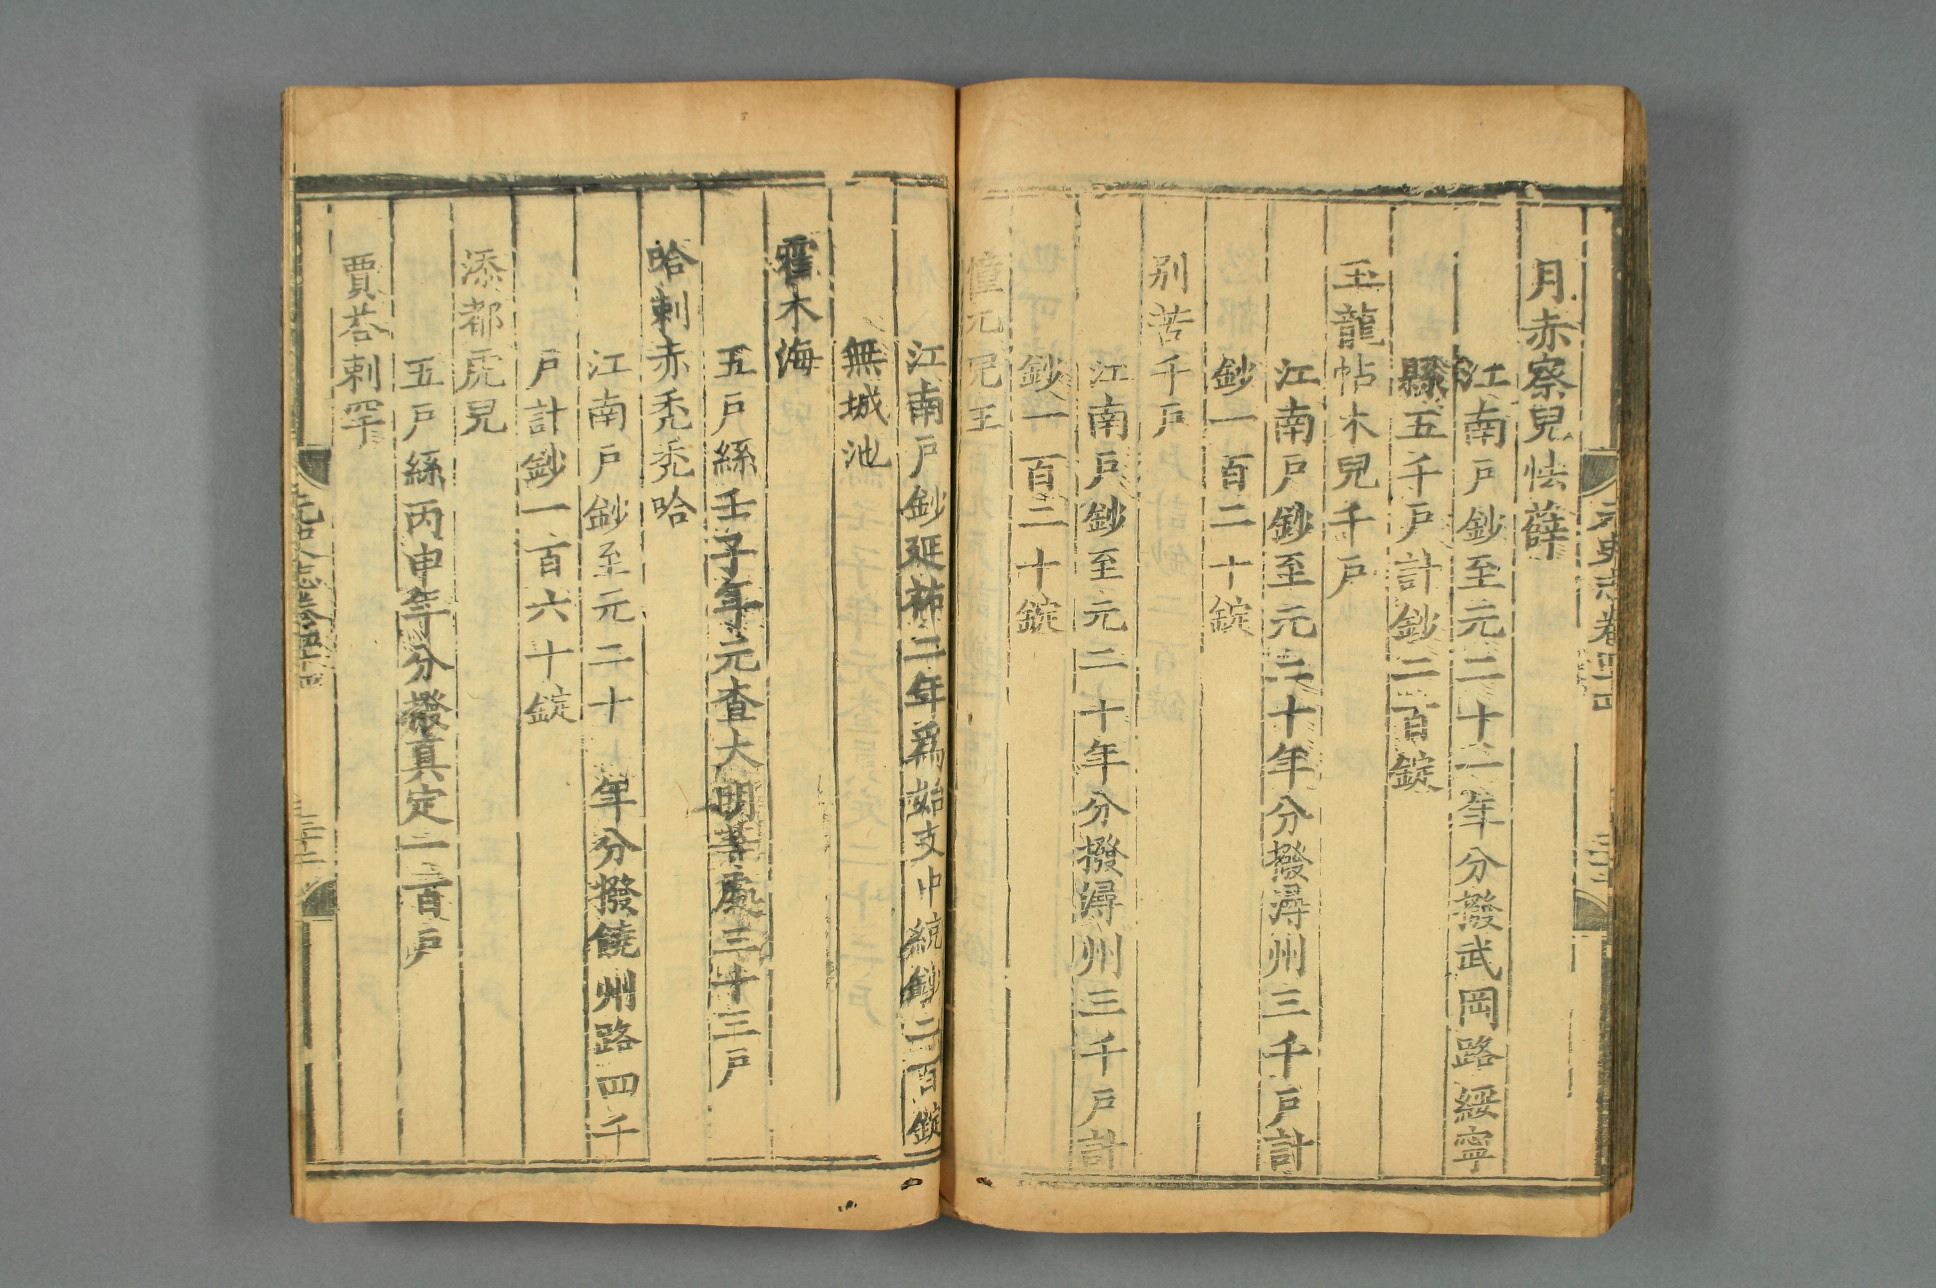 元史志卷四十四
月赤察兒怯薛
江南戶鈔至元二十一年分撥武岡路綏寧
縣五千戶計鈔二百錠
玉龍帖木兒千戶
江南戶鈔至元二十年分撥潯州三千戶計
鈔一百二十錠
別苦千戶
江南戶鈔至元二十年分撥潯州三千戶計
鈔一百二十錠
憧兀兒王
江南戶鈔延祐二年爲始支中統鈔二百錠
無城池
霍木海
五戶絲壬子年元查大明等處三十三戶
哈剌赤禿禿哈
江南戶鈔至元二十一年分撥饒州路四千
戶計鈔一百六十錠
添都虎兒
五戶絲丙申年分撥真定一百戶
賈荅剌罕
元史志卷四十四
三十二